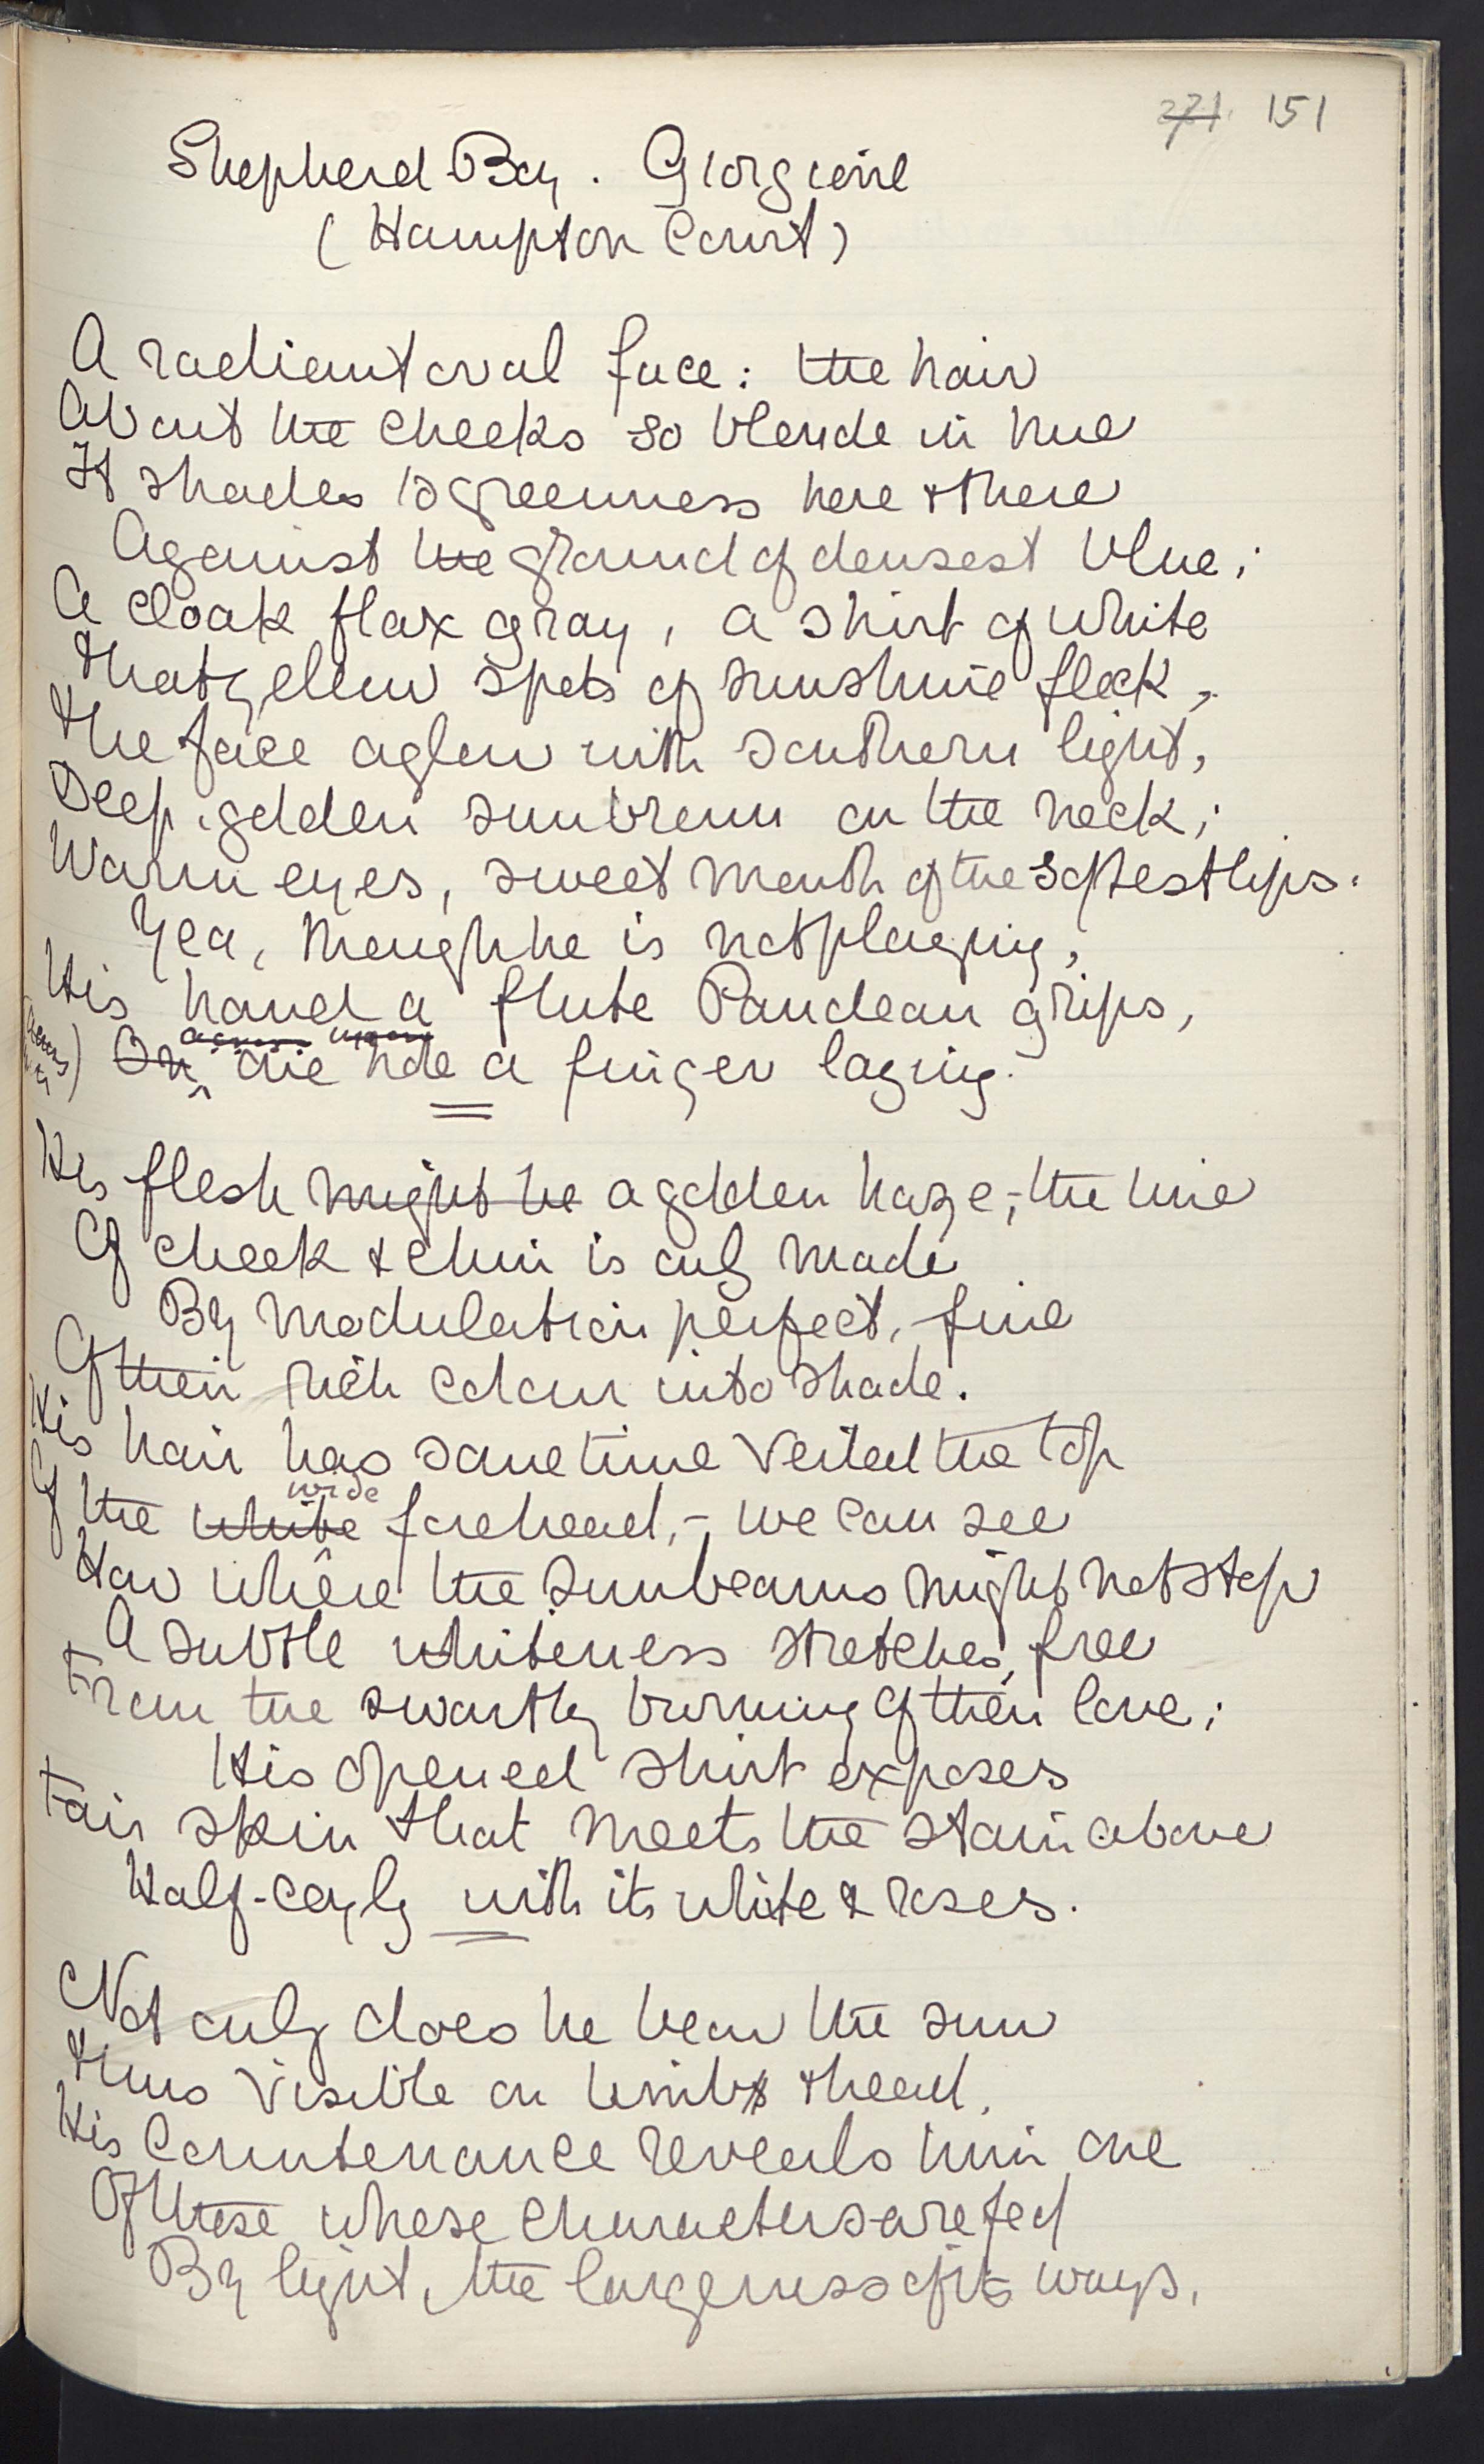 271. 151
Shepherd-Boy. Giorgione
(Hampton Court)
A radiant oval face: the hair
About the cheeks so blonde in hue
It shades to greenness here & there
Against the ground of densest blue;
A cloak flax gray, a shirt of white
That yellow spots of sunshine fleck,
The face aglow with southern light,
Deep, golden sunbrown on the neck;
Warm eyes, sweet mouth of the softest lips.
Yea, though he is not playing,
His hand a flute Pandean grips,
across upon
across
On one hole a finger laying.
His flesh might be a golden haze;-the line
Of cheek & chin is only made
By modulation perfect, fine
Of their rich colour into shade.
His hair has sometime veiled the top
wide
Of the white forehead,- we can see
How where the sunbeams might not stop
A subtle whiteness stretches, free
From the swarthy burning of their love;
His opened shirt exposes
Fair skin that meets the stain above
Half-coyly with its white & roses.
Not only does he bear the sun
Thus visible on limbs & head,
His countenance reveals him one
Of those whose characters are fed
By light, the largeness of its ways,